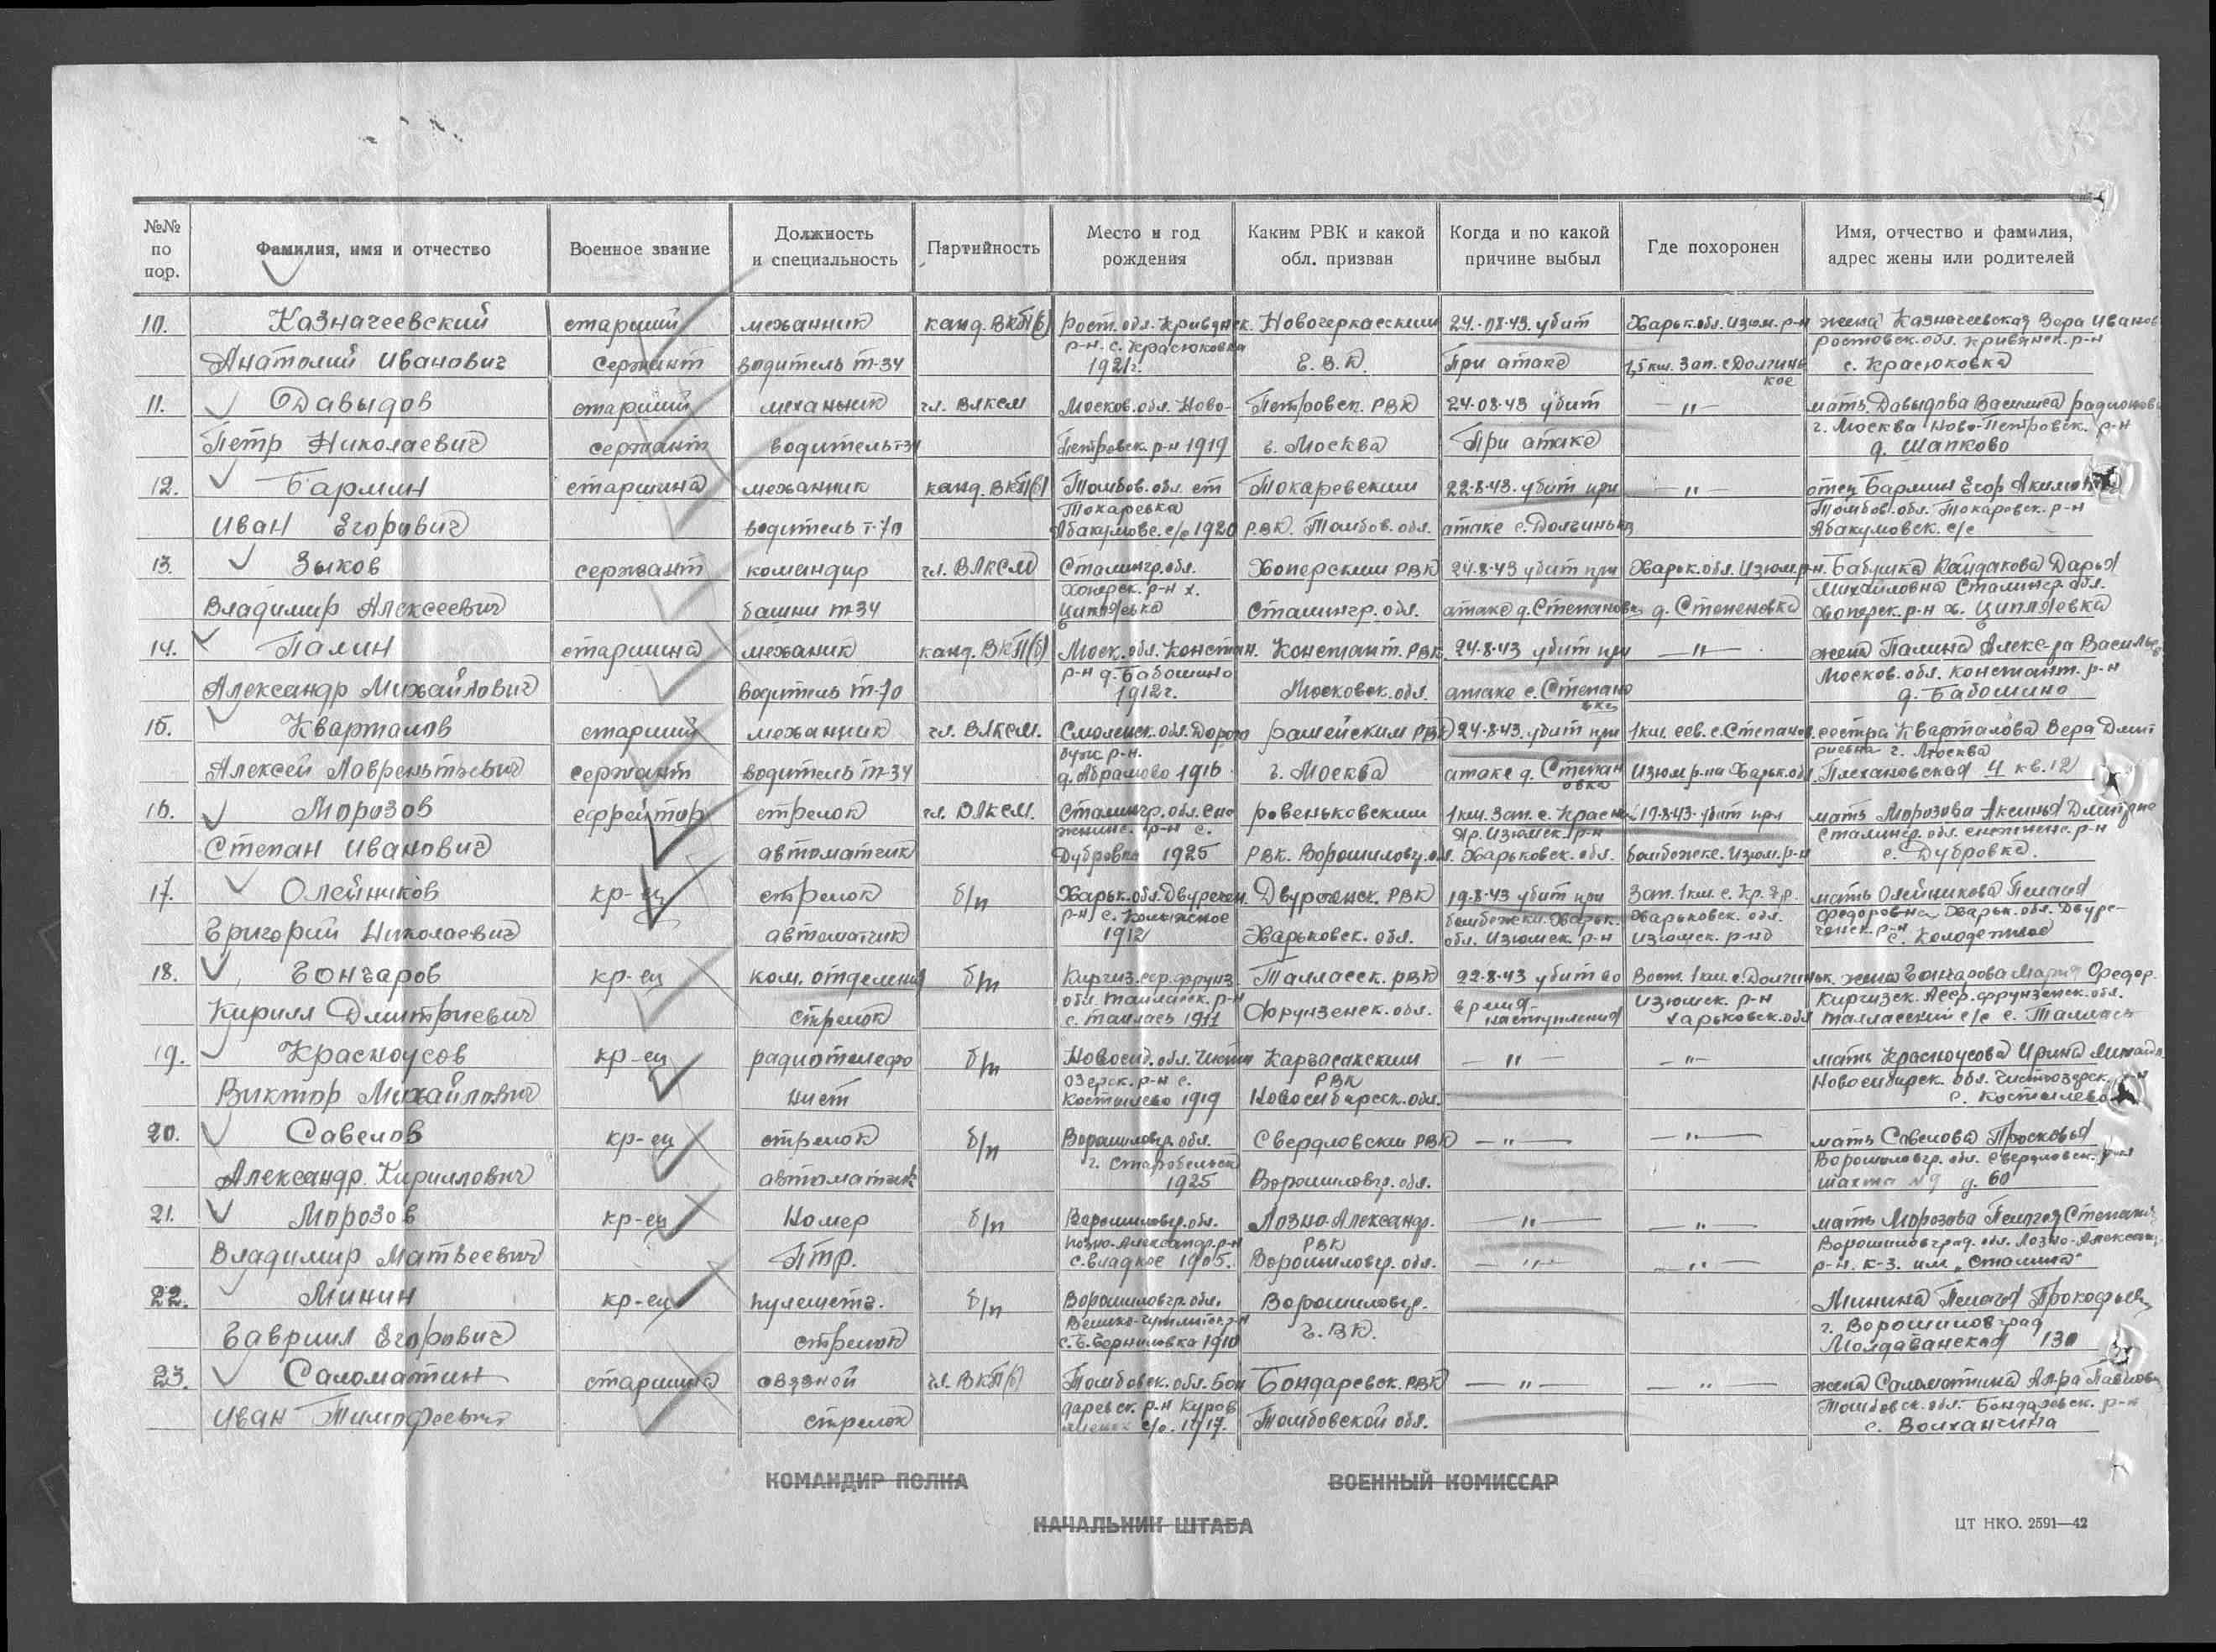 №№ по пор.
Фамилия, имя и отчество
Военное звание
Должность и специальность
Партийность
Место и год рождения
Каким РВК и какой обл. призван
Когда и по какой причине выбыл
Где похоронен
Имя, отчество и фамилия, адрес жены или родителей
10. Казначеевский старший механник канд. ВКП(б) Рост. обл. Кривянск. Новочеркасским 24.-08.43. убит Харьк. обл. Изюм. р-н жена Казначеевская Вера Иванов
р-н. с. Красюковка Ростовск. обл. Кривянск. р-н
Анатолий Иванович сержант водитель Т-34 1921г. Г.В.К. При атаке 1,5 км. Зап. с Долгинь с. Красюковка
кое
11. Давыдов старший механник чл. ВЛКСМ Москов. обл. Ново- Петровск. РВК 24.08.43 убит —"— мать Давыдова Василиса радионов
г. Москва Ново-Петровск. р-н
Петр Николаевич сержант водитель т-34 Петровск. р-н 1919 г. Москва При атаке д. Шапково
12. Бармин старшина механник канд. ВКП(б) Тамбов. обл. ст Токаревским 22-8-43. убит при —"— отец Бармин Егор
Токаревка Тамбов. обл. Токаровск. р-н
Иван Егорович водитель т-70 Абакумовс. с/с 1920 РВК. Тамбов. обл. атаке с. Долгинька Абакумовск. с/с
13. Зыков сержант командир чл. ВЛКСМ Сталингр. обл. Хоперским РВК 24-8-43 убит при Харьк. обл. Изюм. р-н. Бабушка Кандакова Дарья
Хоперск. р-н х. Михайловна Сталингр. обл.
Владимир Алексеевич башни т-34 Ципляевка Сталингр. обл. атаке д. Степановка д. Степеновка Хоперск. р-н х. Ципляевка
14. Палин старшина механик канд. ВКП(б) Моск. обл. Констан. Констант. РВК 24-8-43 убит при —"— жена Палина Алекс-ра Василье
р-н д. Бабошино Москов. обл. Констант. р-н
Александр Михайлович водитель Т-70 1912г. Московск. обл. атаке с. Степано д. Бабошино
вке
15. Квартал­ов старший механник чл. ВЛКСМ. Смоленск. обл. Дорого РВК 24-8-43. убит при 1 км. сев. с. Степанов. сестра Кварталова Вера Дмит
буж р-н. риевна г. Москва
Алексей Лаврентьевич сержант водитель Т-34 д. Абрамово 1916 г. Москва атаке д. Степан Изюм р-на Харьк. обл. Плехановская 4 кв. 12
овка
16. Морозов ефрейтор стрелок чл. ВЛКСМ. Сталингр. обл. ровеньковским 1 км. Зап. с. Красн. 19-8-43. убит при мать Морозова Аксинья Дмитрие
р-н с. Яр. Изюмск. р-н Сталингр. обл. р-н
Степан Иванович автоматчик Дубровка 1925 РВК. Ворошиловгр. обл. Харьковск. обл. бомбежке. Изюм. р-н с. Дубровка.
17. Олейников кр-ец стрелок б/п Харьк. обл. Двуречен. Двуреченск. РВК 19-8-43 убит при Зап. 1 км. с. Кр. Яр. мать Олейникова Пелагея
р-н с. бомбежки. Харьк. Харьковск. обл. федоровна Харьк. обл. Двуре-
ченск. р-н
Григорий Николаевич автоматчик 1912 Харьковск. обл. обл. Изюмск. р-н Изюмск. р-на с. Колодезное
18. Гончаров кр-ец ком. отделения б/п Киргиз. сср. фрунз Таласск. РВК 22-8-43 убит во Вост. 1 км. с. Долгиньк. жена Гончарова Мария Федор.
обл. Таласск. р-н время Изюмск. р-н Киргизск. Асср. фрунзенск. обл.
Кирилл Дмитриевич стрелок с. Талласъ 1911 Фрунзенск. обл. наступления Харьковск. обл Талласский с/с с. Таллась
19. Красноусов кр-ец радиотелефо б/п Новосиб. обл. Чисто Каргасакским — " — —"— мать Красноусова Ирина
Озерск. р-н с. РВК Новосибирск. обл. Чистоозерск. р-н
Виктор Михайлович нист Костылево 1919 Новосибирск. обл. с. Костылево
20. Савелов кр-ец стрелок б/п Ворошиловгр. обл. Свердловским РВК —"— —"— мать Савелова Просковья
г. Старобельск Ворошиловгр. обл. Свердловск. р-н
Александр Кириллович автоматчик 1925 Ворошиловгр. обл. шахта №9 д. 60
21. Морозов кр-ец Номер б/п Ворошиловгр. обл. Лозно-Александр. —"— —"— мать Морозова Пелагея Степан
Лозно-Александр. р-н РВК Ворошиловград. обл. Лозно-Александ
Владимир Матвеевич ПТР. 1905. Ворошиловгр. обл. —"— —"— р-н. к-з. им "Сталина"
22. Минин кр-ец пулеметч. б/п Ворошиловгр. обл. Ворошиловгр. Минина Пелагея Прокофьев
г. Ворошиловград
Гавриил Егорович стрелок 1910 Г.ВК. Молдаванская 130
23. Саломатин старшина связной чл. ВКП(б) Тамбовск. обл. Бон Бондаревск. РВК —"— —"— жена Саломатина
даревск. р-н Куров Тамбовск. обл. Бондаревск. р-н
Иван Тимофеевич стрелок с/с. 1917. Тамбовской обл. с. Волханчина
КОМАНДИР ПОЛКА
ВОЕННЫЙ КОМИССАР
НАЧАЛЬНИК ШТАБА
ЦТ НКО. 2591—42